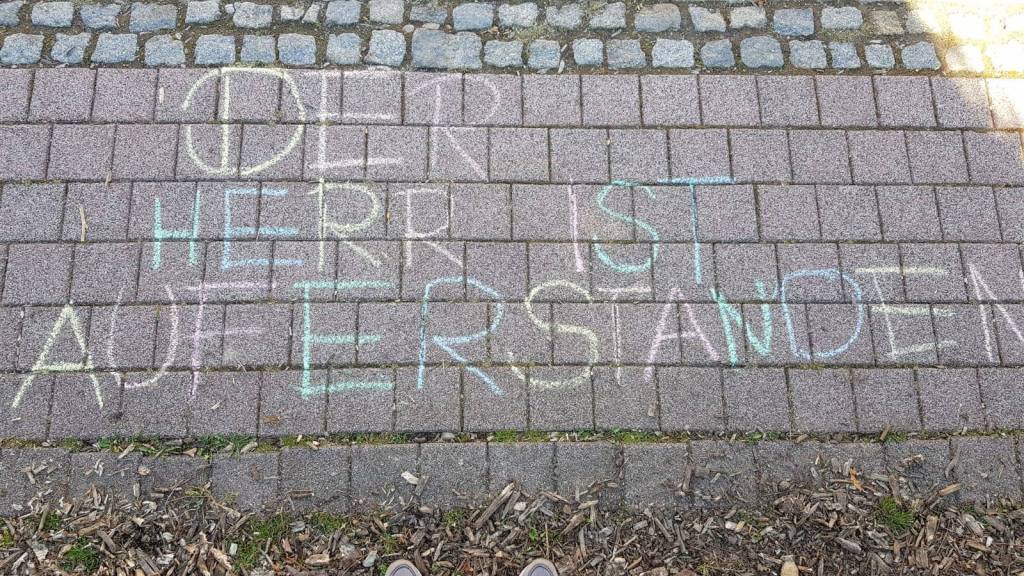 DER
HERR IST
AUFERSTANDEN